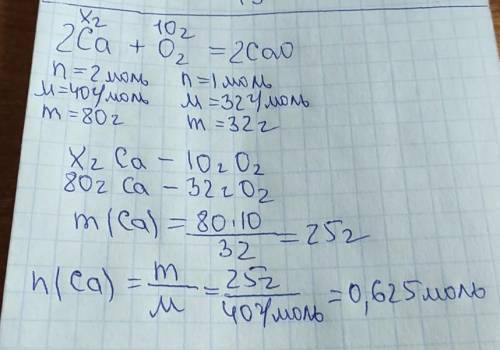 x г 10 г
2Ca + O₂ = 2CaO
n = 2 моль n = 1 моль
M = 40 г/моль M = 32 г/моль
m = 80 г m = 32 г
x г Ca – 10 г O₂
80 г Ca – 32 г O₂
m(Ca) = 80·10 / 32 = 25 г
n(Ca) = m / M = 25 г / 40 г/моль = 0,625 моль